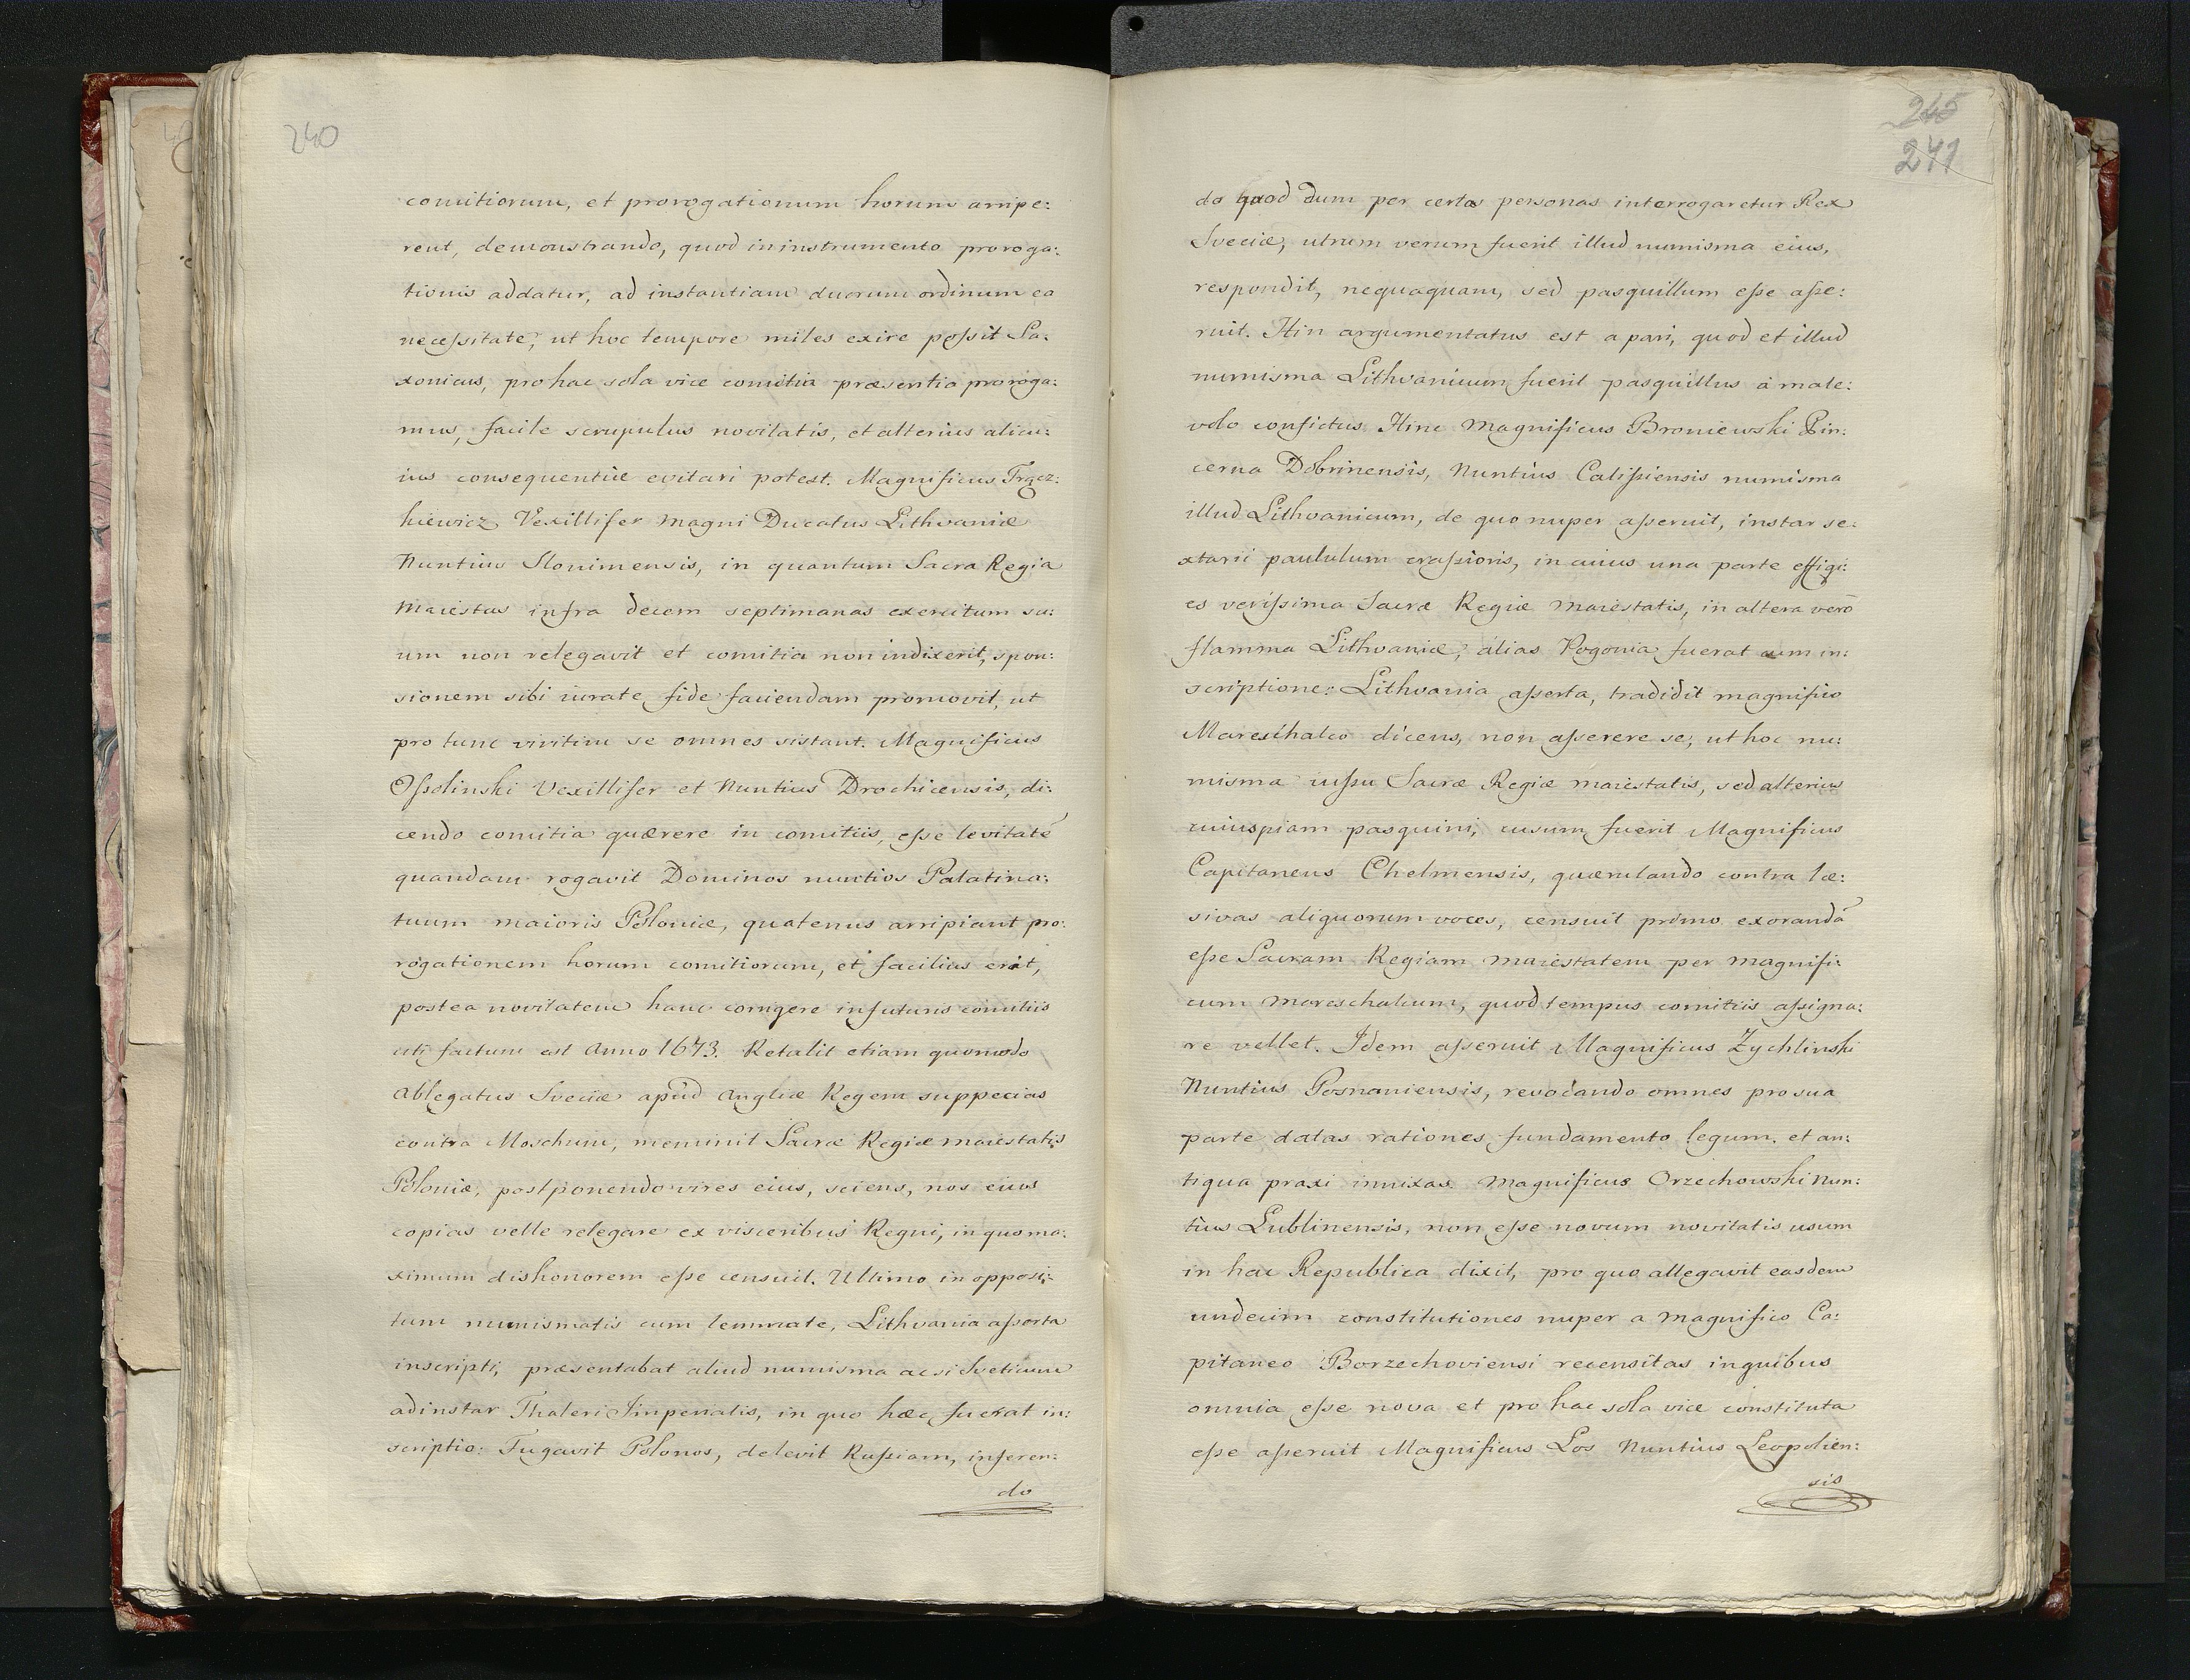 240
comitiorum, et prorogationum horum arripe:
rent, demonstrando, quod in instrumento proroga:
tionis addatur, ad instantiam duorum ordinum ea
necessitate, ut hoc tempore miles exire possit Sa:
xonicus, pro hac sola vice comitia præsentia proroga:
mus, facile scrupulus novitatis, et alterius alicu:
ius consequentiæ evitari potest. Magnificus Trącz:
kiewicz Vexillifer Magni Ducatus Lithvaniæ
Nuntius Slonimensis, in quantum Sacra Regia
Maiestas infra decem septimanas exercitum su:
um non relegavit et comitia non indixerit, spon:
sionem sibi iurate fide faciendam promovit, ut
pro tunc viritim se omnes sistant. Magnificus
Ossolinski Vexillifer et Nuntius Drochicensis, di:
cendo comitia quærere in comitiis, esse levitatē
quandam rogavit Dominos nuntios Palatina:
tuum maioris Poloniæ, quatenus arripiant pro:
rogationem horum comitiorum, et facilius erit,
postea novitatem hanc corrigere in futuris comitiis
uti factum est Anno 1673. Retulit etiam quomodo
Ablegatus Sveciæ apud Angliæ Regem suppecias
contra Moschum, meminit Sacræ Regiæ maiestatis
Poloniæ, postponendo vires eius, sciens, nos eius
copias velle relegare ex visceribus Regni, in quo ma:
ximum dishonorem esse censuit. Ultimo in opposi:
tum numismatis cum lemmate, Lithvania asserta
inscripti, præsentabat aliud numisma ac si Sveticum
adinstar Thaleri Imperialis, in quo hæc fuerat in:
scriptio: Fugavit Polonos, delevit Russiam, inferen:
do
245
241
do quod dum per certas personas interrogaretur Rex
Sveciæ, utrum verum fuerit illud numisma eius,
respondit, nequaquam, sed pasquillum esse asse:
ruit. Hin argumentatus est a pari, quod et illud
numisma Lithvanicum fuerit pasquillus à male:
volo confictus. Hinc Magnificus Broniewski Pin:
cerna Dobrinensis, Nuntius Calissiensis numisma
illud Lithvanicum, de quo nuper asseruit, instar se:
xtarii paululum crassioris, in cuius una parte effigi:
es verissima Sacræ Regiæ Maiestatis, in altera vero
stamma Lithvaniæ, álias Pogonia fuerat cum in:
scriptione: Lithvania asserta, tradidit magnifico
Mareschalco dicens, non asserere se, ut hoc nu:
misma iussu Sacræ Regiæ Maiestatis, sed alterius
cuiuspiam pasquini, cusum fuerit Magnificus
Capitaneus Chelmensis, quærulando contra læ:
sivas aliquorum voces, censuit primo exorandā
esse Sacram Regiam Maiestatem per magnifi:
cum Mareschalcum, quod tempus comitiis assigna:
re vellet. Idem asseruit Magnificus Zychlinski
Nuntius Posnaniensis, revocando omnes pro sua
parte datas rationes fundamento legum. et an:
tiqua praxi innixas. Magnificus Orzechowski Nun:
tius Lublinensis, non esse novum novitatis usum
in hac Republica dixit, pro quo allegavit easdem
undecim constitutiones nuper a Magnifico Ca:
pitaneo Borzechoviensi recensitas in quibus
omnia esse nova et pro hac sola vice constituta
esse asseruit Magnificus Los Nuntius Leopolien:
sis